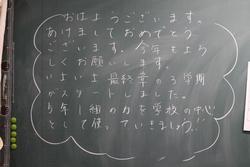 おはようございます。
あけましておめでとう
ございます。今年もよろ
しくお願いします。
いよいよ最終章の3学期
がスタートしました。
5年1組の力を学校の中心
として使っていきましょう!!